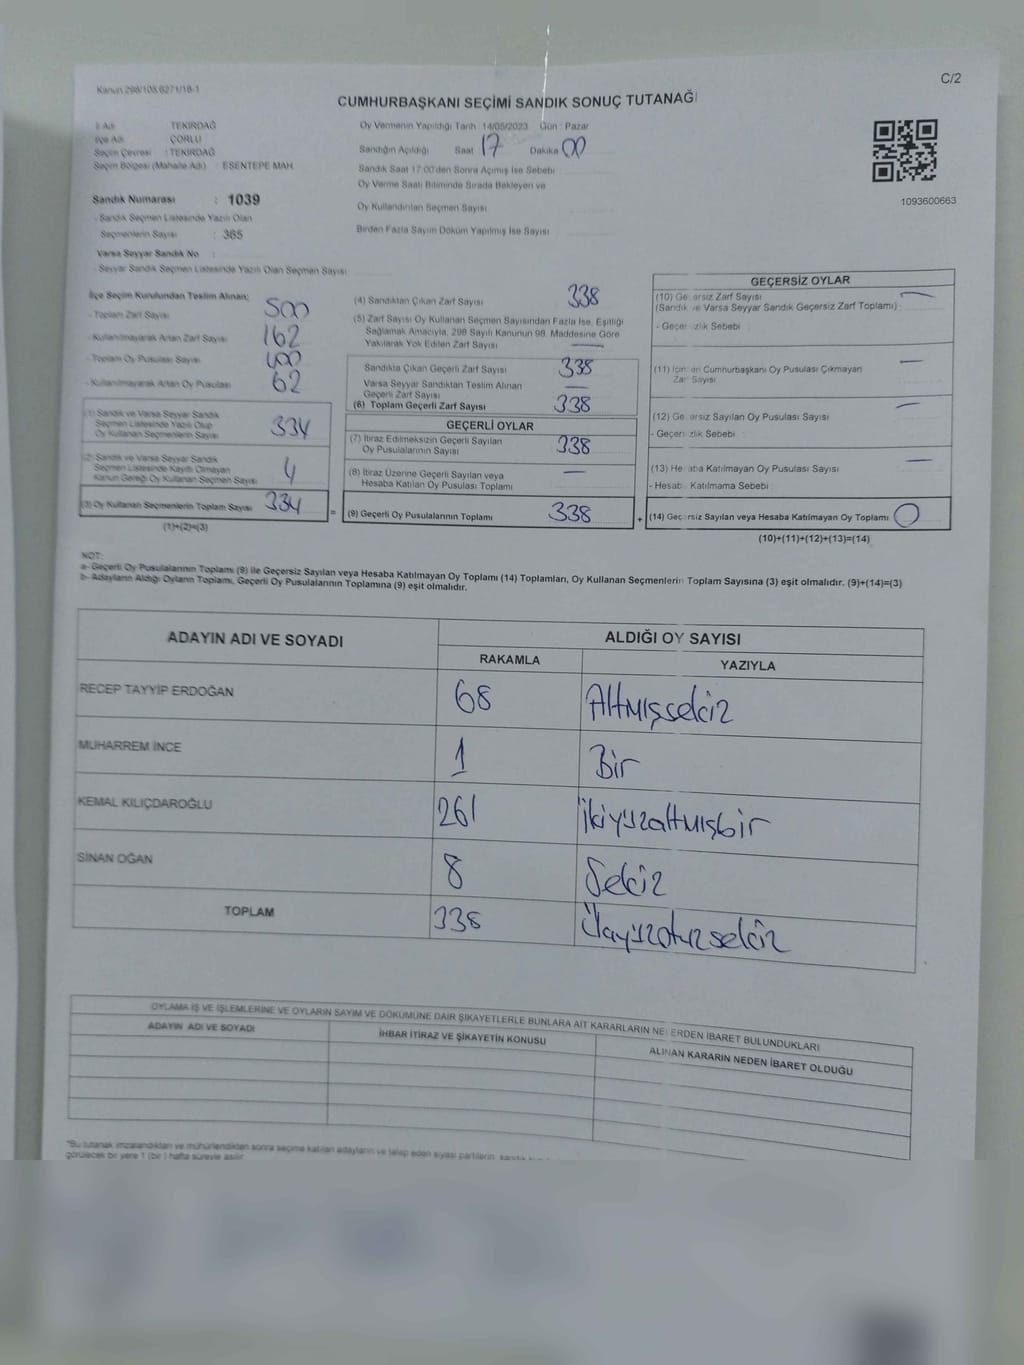 C/2
Kanun 298/105,6271/18-1
CUMHURBAŞKANI SEÇİMİ SANDIK SONUÇ TUTANAĞI
İl Adı TEKİRDAĞ
İlçe Adı ÇORLU
Seçim Çevresi : TEKİRDAĞ
Seçim Bölgesi (Mahalle Adı) : ESENTEPE MAH.
Oy Vermenin Yapıldığı Tarih : 14/05/2023 Gün : Pazar
Sandığın Açıldığı Saat 17 Dakika 00
Sandık Saat 17:00'den Sonra Açımış İse Sebebi
Oy Verme Saati Bitiminde Sırada Bekleyen ve
Oy Kullandırılan Seçmen Sayısı
Birden Fazla Sayım Döküm Yapılmış İse Sayısı
1093600663
Sandık Numarası : 1039
- Sandık Seçmen Listesinde Yazılı Olan
Seçmenlerin Sayısı : 365
Varsa Seyyar Sandık No :
- Seyyar Sandık Seçmen Listesinde Yazılı Olan Seçmen Sayısı
İlçe Seçim Kurulundan Teslim Alınan;
- Toplam Zarf Sayısı 500
- Kullanılmayarak Artan Zarf Sayısı 162
- Toplam Oy Pusulası Sayısı 400
- Kullanılmayarak Artan Oy Pusulası 62
(1) Sandık ve Varsa Seyyar Sandık
Seçmen Listesinde Yazılı Olup
Oy Kullanan Seçmenlerin Sayısı 334
(2) Sandık ve Varsa Seyyar Sandık
Seçmen Listesinde Kayıtlı Olmayan
Kanun Gereği Oy Kullanan Seçmen Sayısı 4
(3) Oy Kullanan Seçmenlerin Toplam Sayısı 334 =
(1)+(2)=(3)
(4) Sandıktan Çıkan Zarf Sayısı 338
(5) Zarf Sayısı Oy Kullanan Seçmen Sayısından Fazla İse, Eşitliği
Sağlamak Amacıyla, 298 Sayılı Kanunun 98. Maddesine Göre
Yakılarak Yok Edilen Zarf Sayısı —
Sandıkta Çıkan Geçerli Zarf Sayısı 338
Varsa Seyyar Sandıktan Teslim Alınan
Geçerli Zarf Sayısı —
(6) Toplam Geçerli Zarf Sayısı 338
GEÇERLİ OYLAR
(7) İtiraz Edilmeksizin Geçerli Sayılan
Oy Pusulalarının Sayısı 338
(8) İtiraz Üzerine Geçerli Sayılan veya
Hesaba Katılan Oy Pusulası Toplamı —
(9) Geçerli Oy Pusulalarının Toplamı 338 +
GEÇERSİZ OYLAR
(10) Geçersiz Zarf Sayısı —
(Sandık ve Varsa Seyyar Sandık Geçersiz Zarf Toplamı)
- Geçersizlik Sebebi
(11) İçinden Cumhurbaşkanı Oy Pusulası Çıkmayan —
Zarf Sayısı
(12) Geçersiz Sayılan Oy Pusulası Sayısı —
- Geçersizlik Sebebi
(13) Hesaba Katılmayan Oy Pusulası Sayısı —
- Hesaba Katılmama Sebebi
(14) Geçersiz Sayılan veya Hesaba Katılmayan Oy Toplamı 0
(10)+(11)+(12)+(13)=(14)
NOT:
a- Geçerli Oy Pusulalarının Toplamı (9) ile Geçersiz Sayılan veya Hesaba Katılmayan Oy Toplamı (14) Toplamları, Oy Kullanan Seçmenlerin Toplam Sayısına (3) eşit olmalıdır. (9)+(14)=(3)
b- Adayların Aldığı Oyların Toplamı, Geçerli Oy Pusulalarının Toplamına (9) eşit olmalıdır.
ADAYIN ADI VE SOYADI ALDIĞI OY SAYISI
RAKAMLA YAZIYLA
RECEP TAYYİP ERDOĞAN 68 Altmışsekiz
MUHARREM İNCE 1 Bir
KEMAL KILIÇDAROĞLU 261 ikiyüzaltmışbir
SİNAN OĞAN 8 Sekiz
TOPLAM 338 Üçyüzotuzsekiz
OYLAMA İŞ VE İŞLEMLERİNE VE OYLARIN SAYIM VE DÖKÜMÜNE DAİR ŞİKAYETLERLE BUNLARA AİT KARARLARIN NELERDEN İBARET BULUNDUKLARI
ADAYIN ADI VE SOYADI İHBAR İTİRAZ VE ŞİKAYETİN KONUSU ALINAN KARARIN NEDEN İBARET OLDUĞU
*Bu tutanak imzalandıktan ve mühürlendikten sonra seçime katılan adayların ve talep eden siyasi partilerin
görülecek bir yere 1 (bir) hafta süreyle asılır